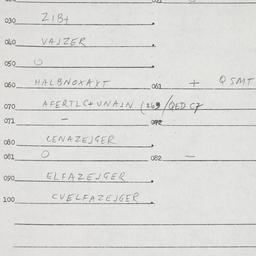 030 ZIB+
040 VAJZER
050 O
060 HALBNOXAYT 061 + QSMT
070 AFERTLC+UNAJN (269/QED C7
071 -
080 CENAZEJGER
081 O 082 -
090 ELFAZEJGER
100 CVELFAZEJGER